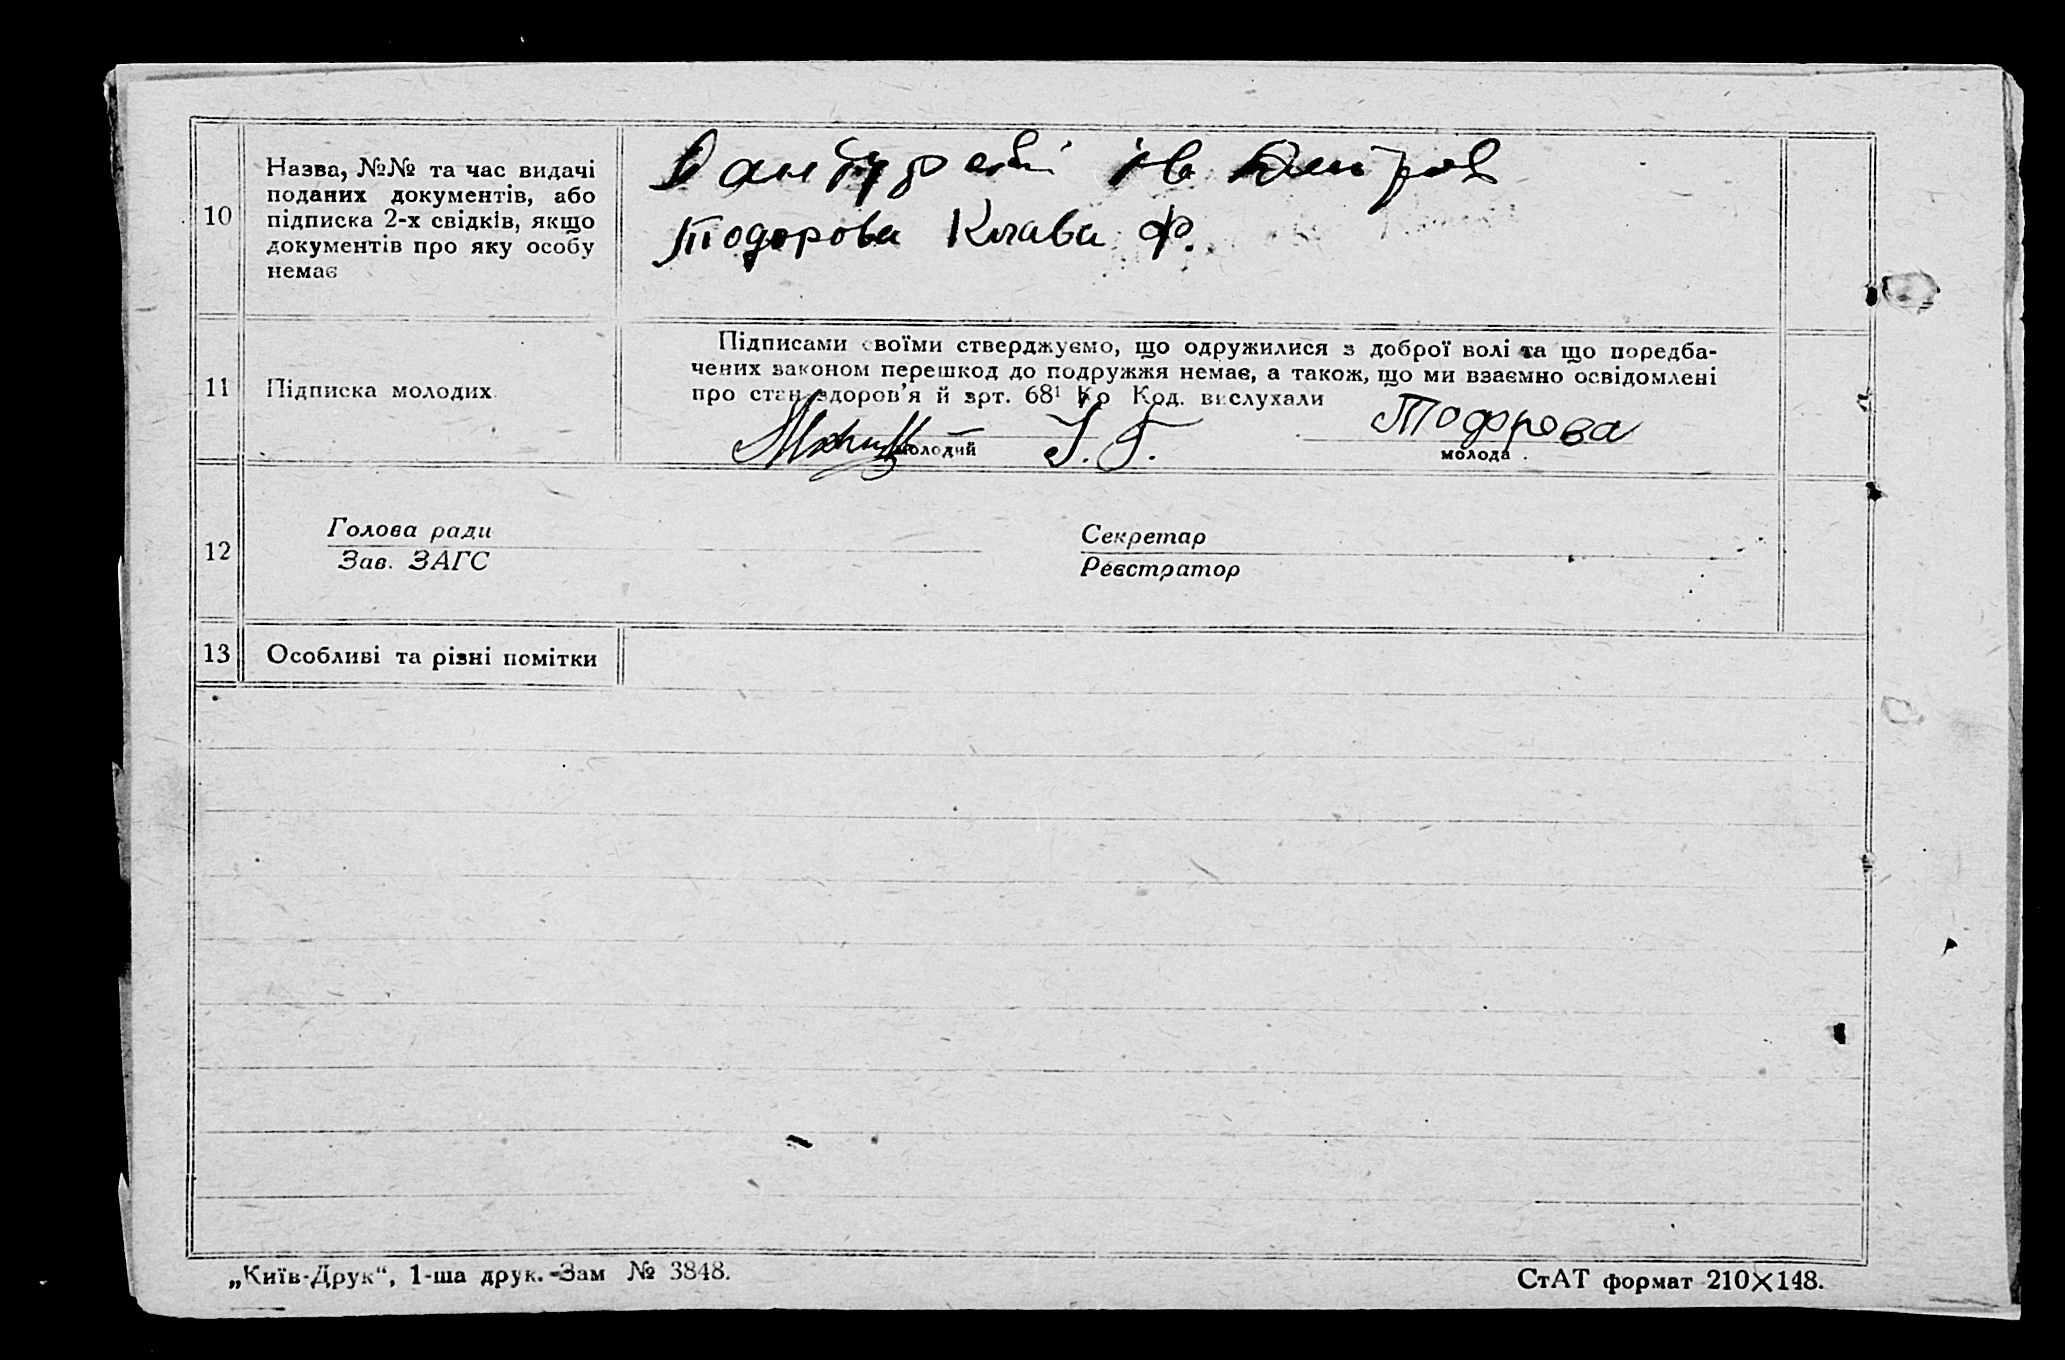 10
Назва, №№ та час видачі
поданих документів, або
підписка 2-х свідків, якщо
документів про яку особу
немає
Тодорова Клава Ф.
11
Підписка молодих
Підписами своїми стверджуємо, що одружилися з доброї волі та що поредба-
чених законом перешкод до подружжя немає, а також, що ми взаємно освідомлені
про стан здоров'я й арт. 68¹ Кр Код. вислухали
молодий
І. Г.
Тодорова
молода
12
Голова ради
Зав. ЗАГС
Секретар
Реєстратор
13
Особливі та різні помітки
„Київ-Друк“, 1-ша друк.-Зам № 3848.
СтАТ формат 210×148.